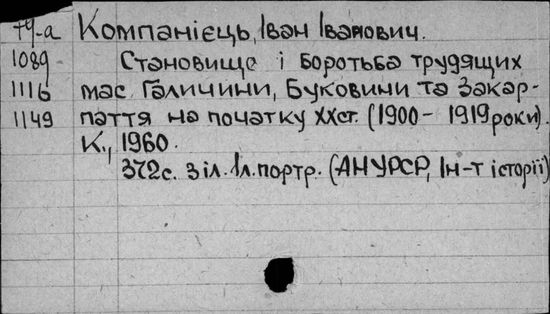 79-а Компанієць, Іван Іванович.
1089 Становище і боротьба трудящих
1116 мас Галичини, Буковини та Закар-
1149 паття на початку ХХст. (1900 - 1919 роки).
К., 1960.
372с. з іл. 1л. портр. (АН УРСР, Ін-т історії)